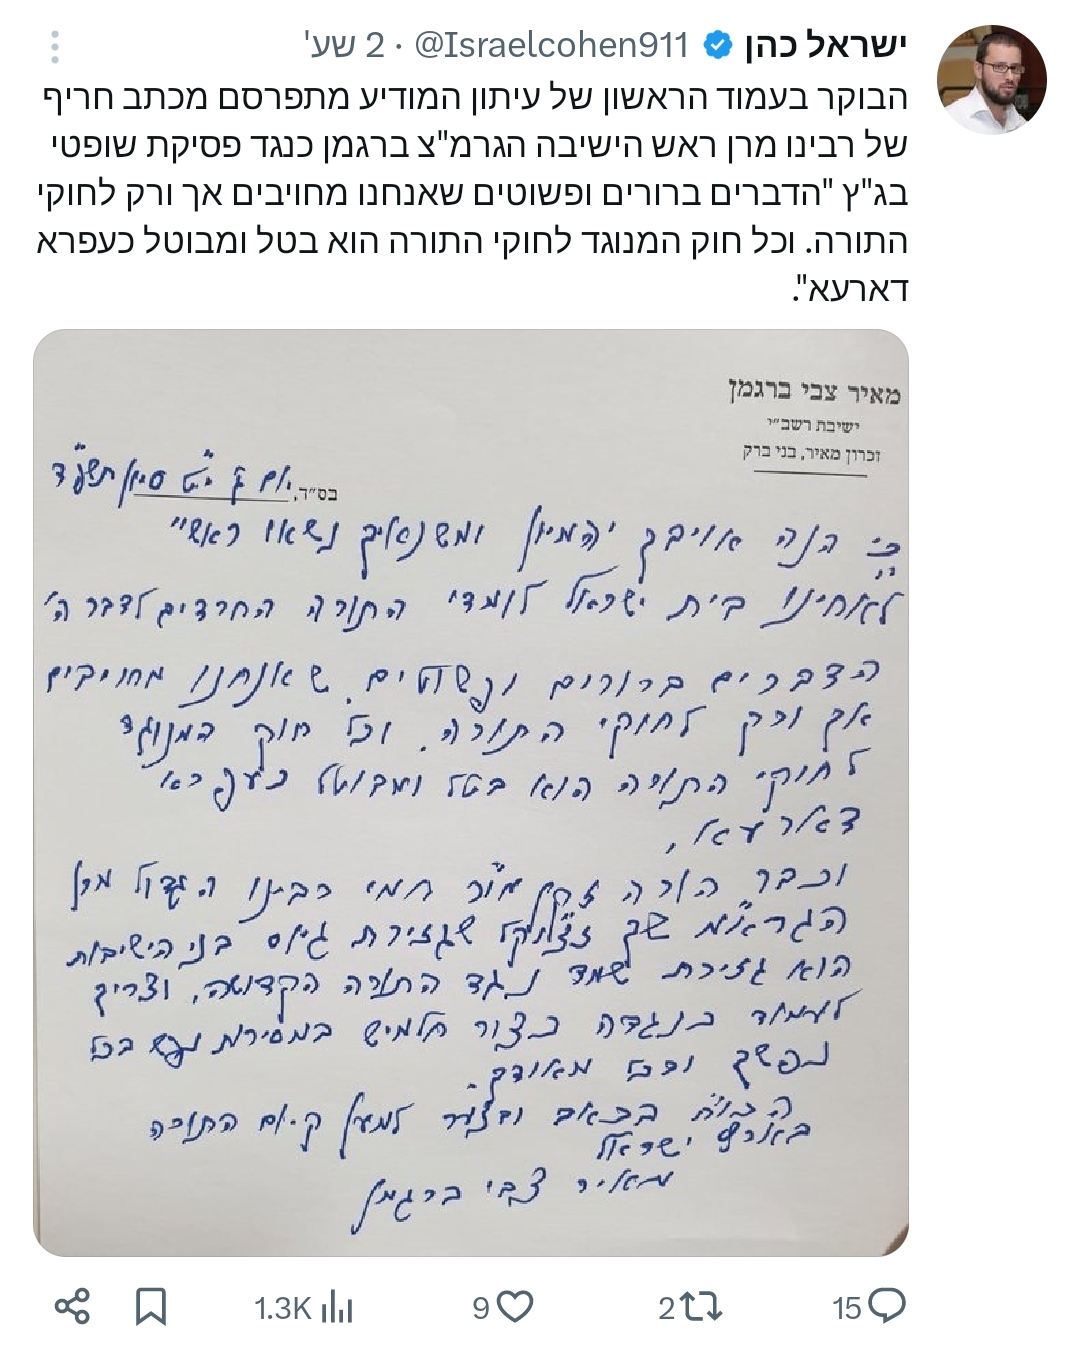 ישראל כהן @Israelcohen911 · 2 שע'
הבוקר בעמוד הראשון של עיתון המודיע מתפרסם מכתב חריף
של רבינו מרן ראש הישיבה הגרמ"צ ברגמן כנגד פסיקת שופטי
בג"ץ "הדברים ברורים ופשוטים שאנחנו מחויבים אך ורק לחוקי
התורה. וכל חוק המנוגד לחוקי התורה הוא בטל ומבוטל כעפרא
דארעא".
מאיר צבי ברגמן
ישיבת רשב״י
זכרון מאיר, בני ברק
בס״ד, יום ג' י"ט סיון תשפ"ד
כי הנה אויביך יהמיון ומשנאיך נשאו ראש״
לאחינו בית ישראל לומדי התורה החרדים לדבר ה'
הדברים ברורים ופשוטים. שאנחנו מחויבים
אך ורק לחוקי התורה. וכל חוק המנוגד
לחוקי התורה הוא בטל ומבוטל כעפרא
דארעא,
וכבר הורה זקן מו"ר חמי רבינו הגדול מרן
הגרא"מ שך זצוק"ל שגזירת גיוס בני הישיבות
הוא גזירת שמד נגד התורה הקדושה, וצריך
לעמוד כנגדה כצור חלמיש במסירות נפש בכל
נפשך ובכל מאודך.
הכו"ח בכאב ובצער למען קיום התורה
בארץ ישראל
מאיר צבי ברגמן
15 2 9 1.3K